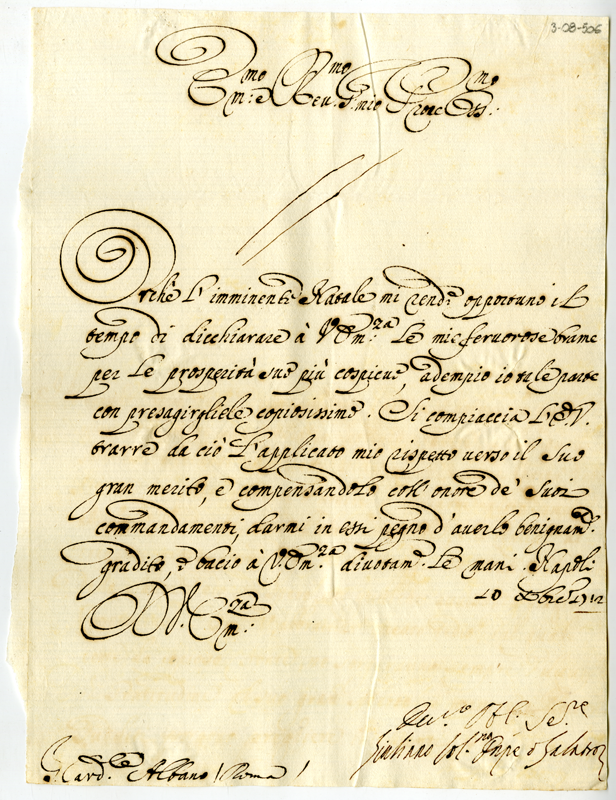 3-08-506
Em:mo e Rev.mo Sig.r mio Pron Oss.mo:
Orchè L'imminente Natale mi rende opportuno il
tempo di dicchiarare à V. Em:za Le mie fervorose brame
per Le prosperità sue più cospicue, adempio io tale parte
con presagirgliele copiosissime. Si compiaccia L'E.V.
trarre da ciò L'applicato mio rispetto verso il suo
gran merito, e compensandolo coll'onore de' suoi
commandamenti, darmi in essi pegno d'averlo benignam.e
gradito, e bacio à V. Em:za divotam.e Le mani. Napoli
10 Xbre 1712
D. V. Em:za
Dev.o Obl. Se.re
Giuliano Col.na Pnpe di Galatro
Card.le Albano / Roma /